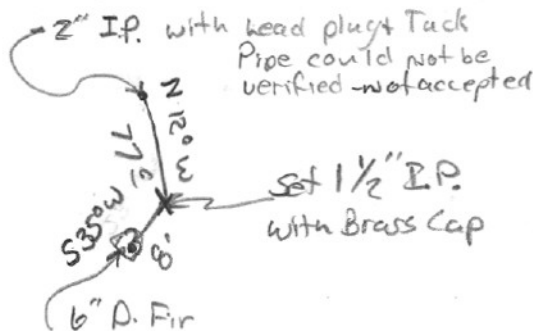 2" I.P. with Lead plug & Tack
Pipe could not be
verified - not accepted
N 12° W
S35°W
8'
Set 1 1/2" I.P.
with Brass Cap
6" D. Fir